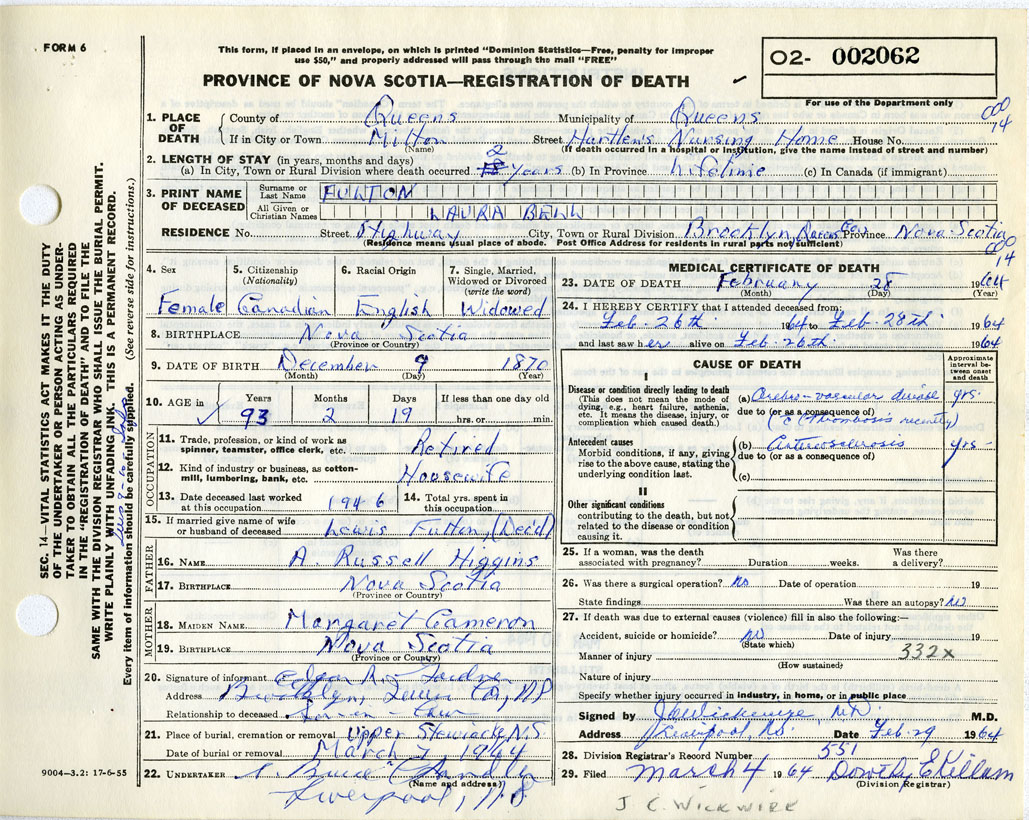 FORM 6
This form, if placed in an envelope, on which is printed "Dominion Statistics—Free, penalty for improper
use $50," and properly addressed will pass through the mail "FREE"
PROVINCE OF NOVA SCOTIA—REGISTRATION OF DEATH
O2- 002062
For use of the Department only
000
14
1. PLACE OF DEATH
County of Queens Municipality of Queens
If in City or Town Milton Street Hartlen's Nursing Home House No.
(Name) (If death occurred in a hospital or institution, give the name instead of street and number)
2. LENGTH OF STAY (in years, months and days)
(a) In City, Town or Rural Division where death occurred 2 years (b) In Province lifetime (c) In Canada (if immigrant)
3. PRINT NAME OF DECEASED
Surname or Last Name FULTON
All Given or Christian Names LAURA BELL
RESIDENCE No. Street Highway City, Town or Rural Division Brooklyn, Queens Co. Province Nova Scotia
(Residence means usual place of abode. Post Office Address for residents in rural parts not sufficient)
000
14
4. Sex Female
5. Citizenship (Nationality) Canadian
6. Racial Origin English
7. Single, Married, Widowed or Divorced (write the word) Widowed
8. BIRTHPLACE Nova Scotia
(Province or Country)
9. DATE OF BIRTH December 9 1870
(Month) (Day) (Year)
10. AGE in Years 93 Months 2 Days 19 If less than one day old hrs. or min.
OCCUPATION
11. Trade, profession, or kind of work as spinner, teamster, office clerk, etc. Retired
12. Kind of industry or business, as cotton-mill, lumbering, bank, etc. Housewife
13. Date deceased last worked at this occupation 1946
14. Total yrs. spent in this occupation
15. If married give name of wife or husband of deceased Lewis Fulton, (Dec'd)
FATHER
16. NAME A. Russell Higgins
17. BIRTHPLACE Nova Scotia
(Province or Country)
MOTHER
18. MAIDEN NAME Margaret Cameron
19. BIRTHPLACE Nova Scotia
(Province or Country)
20. Signature of informant
Address Brooklyn, Queens Co., N.S.
Relationship to deceased
21. Place of burial, cremation or removal Upper Stewiacke N.S.
Date of burial or removal March 7, 1964
22. UNDERTAKER
(Name and address)
Liverpool, N.S.
MEDICAL CERTIFICATE OF DEATH
23. DATE OF DEATH February 28 1964
(Month) (Day) (Year)
24. I HEREBY CERTIFY that I attended deceased from:
Feb. 26th 1964 to Feb. 28th 1964
and last saw her alive on Feb. 26th. 1964
CAUSE OF DEATH
Approximate interval between onset and death
I
Disease or condition directly leading to death
(This does not mean the mode of dying, e.g., heart failure, asthenia, etc. It means the disease, injury, or complication which caused death.)
(a) Cerebro-vascular disease yrs.
due to (or as a consequence of)
(c Thrombosis recently)
Antecedent causes
Morbid conditions, if any, giving rise to the above cause, stating the underlying condition last.
(b) Arteriosclerosis yrs-
due to (or as a consequence of)
(c)
II
Other significant conditions
contributing to the death, but not related to the disease or condition causing it.
25. If a woman, was the death associated with pregnancy? Duration weeks. Was there a delivery?
26. Was there a surgical operation? No Date of operation 19
State findings Was there an autopsy? No
27. If death was due to external causes (violence) fill in also the following:—
Accident, suicide or homicide? No Date of injury 19
(State which)
Manner of injury 332x
(How sustained)
Nature of injury
Specify whether injury occurred in industry, in home, or in public place
Signed by J C Wickwire, M.D. M.D.
Address Liverpool, N.S. Date Feb. 29 1964
28. Division Registrar's Record Number 551
29. Filed March 4 1964 Dorothy E Killam
(Division Registrar)
J C. WICKWIRE
9004—3.2: 17-6-55
SEC. 14—VITAL STATISTICS ACT MAKES IT THE DUTY
OF THE UNDERTAKER OR PERSON ACTING AS UNDER-
TAKER TO OBTAIN ALL THE PARTICULARS REQUIRED
IN THE "REGISTRATION OF DEATH" AND TO FILE THE
SAME WITH THE DIVISION REGISTRAR WHO SHALL ISSUE THE BURIAL PERMIT.
WRITE PLAINLY WITH UNFADING INK. THIS IS A PERMANENT RECORD.
Every item of information should be carefully supplied. (See reverse side for instructions.)